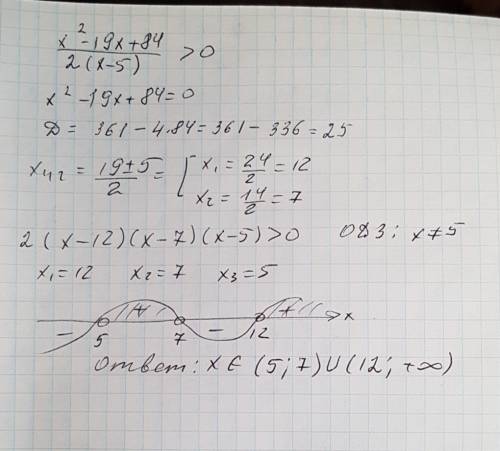 x² - 19x + 84 / 2(x-5) > 0
x² - 19x + 84 = 0
D = 361 - 4·84 = 361 - 336 = 25
x₁,₂ = 19±5 / 2 = [ x₁ = 24/2 = 12
x₂ = 14/2 = 7
2(x-12)(x-7)(x-5) > 0 ОДЗ: x ≠ 5
x₁ = 12 x₂ = 7 x₃ = 5
- + - + x
5 7 12
Ответ: x ∈ (5; 7) ∪ (12; +∞)